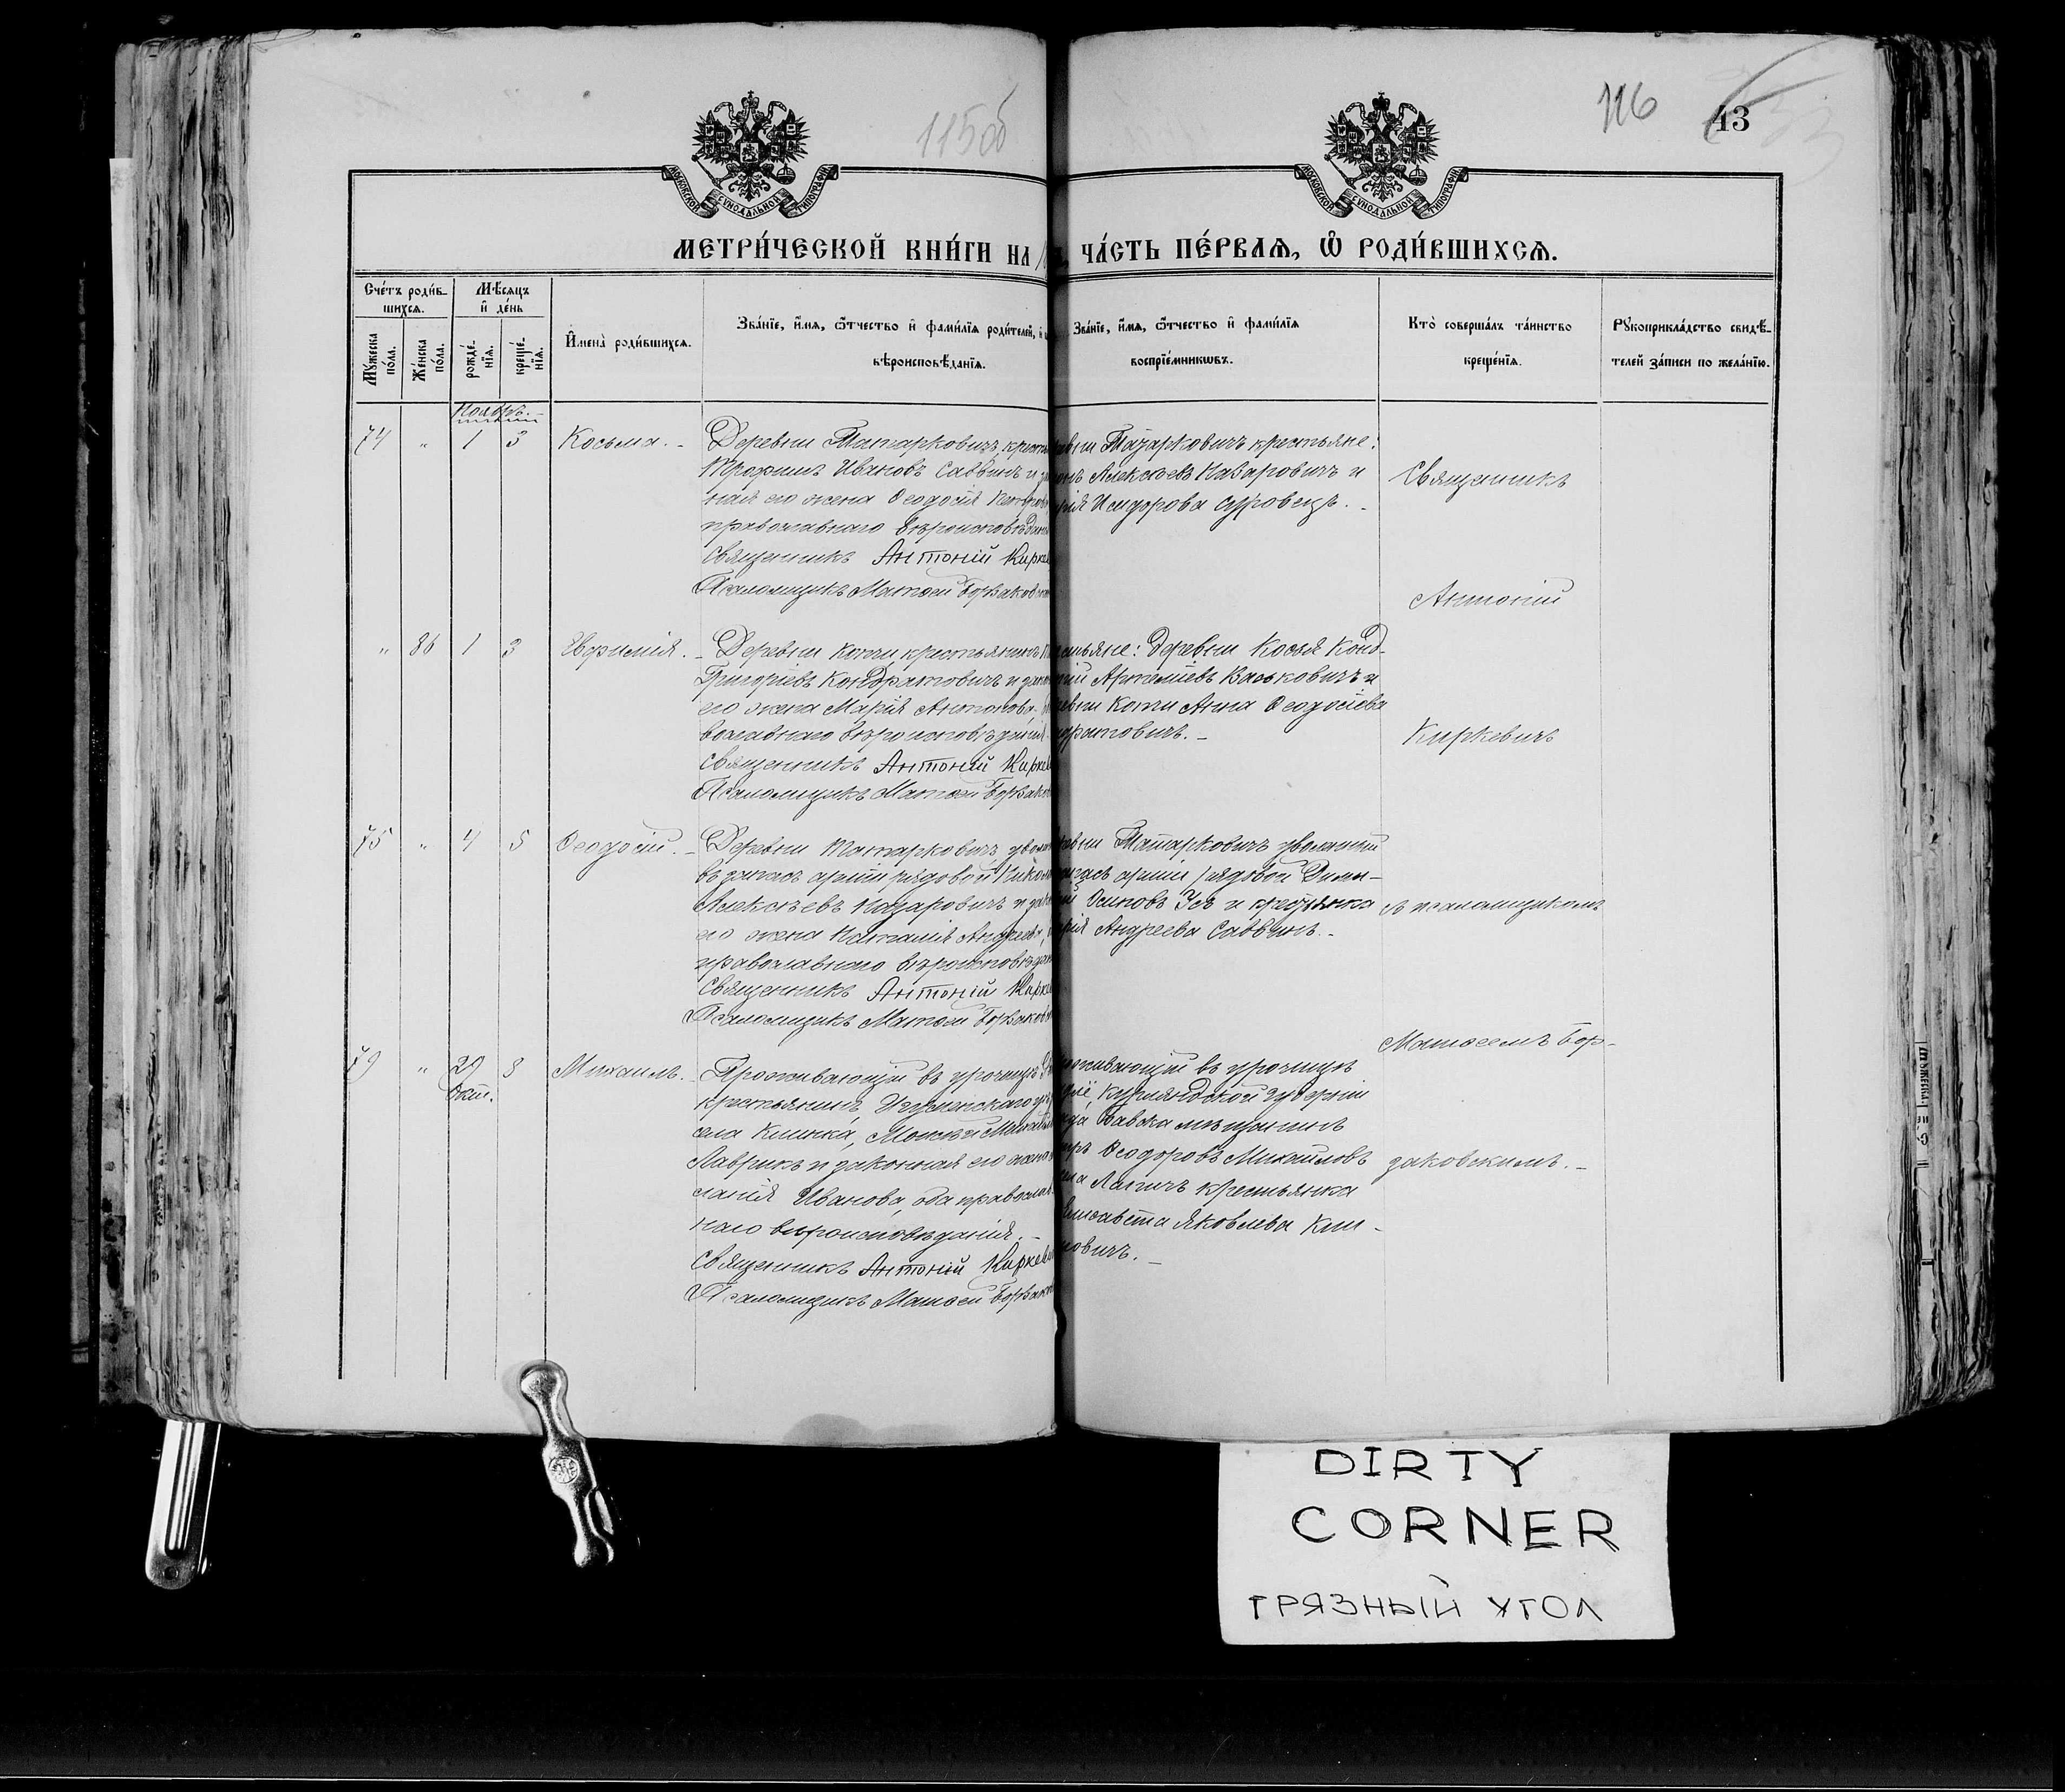 115об
116
43
МОСКОВСКОЙ СѴНОДАЛЬНОЙ ТИПОГРАФІИ
МОСКОВСКОЙ СѴНОДАЛЬНОЙ ТИПОГРАФІИ
МЕТРИ́ЧЕСКОЙ КНИ́ГИ НА
ЧА́СТЬ ПЕ́РВАѦ, Ѽ РОДИ́ВШИХСѦ.
Сче́тъ роди́в-
шихсѧ.
Мꙋ́жеска по́ла.
Же́нска по́ла.
Мѣ́сѧцъ
и҆ де́нь
рожде́-
нїѧ.
креще́-
нїѧ.
И҆мена̀ роди́вшихсѧ.
Зва́нїе, и҆́мѧ, ѻ҆́тчество и҆ фами́лїѧ роди́телей, и҆
вѣроисповѣ́данїѧ.
Зва́нїе, и҆́мѧ, ѻ҆́тчество и҆ фами́лїѧ
воспрїе́мникѡвъ.
Кто̀ соверша́лъ та́инство
креще́нїѧ.
Рꙋкоприкла́дство свидѣ́-
телей за́писи по жела́нїю.
Ноябрь.
74 " 1 3 Косьма. - Деревни Татарковичъ, крест
Трофимъ Ивановъ Саввинъ и за
ная его жена Ѳеодосія Петров
православнаго вѣроисповѣдан
Священникъ Антоній Кирке
Псаломщикъ Матѳей Борзаков
Татарковичъ крестьяне:
Алексѣевъ Назаровичъ и
Исидорова Суровецъ. -
Священникъ
Антоній
" 86 1 3 Евфимія. - Деревни Коти, крестьянинъ
Григоріевъ Кондратовичъ и закон
его жена Марія Антонова,
вославнаго вѣроисповѣданія
Священникъ Антоній Кирке
Псаломщикъ Матѳей Борзак
стьяне: деревни Косья Конд-
Артеміевъ Васьковичъ и
Коти Анна Ѳеодосіева
дратовичъ. -
Киркевичъ
75 " 4 5 Ѳеодосій. - Деревни Татарковичъ увол
въ запасъ арміи рядовой Никол
Алексѣевъ Назаровичъ и зак
его жена Наталія Андреева,
православнаго вѣроисповѣдан
Священникъ Антоній Кирке
Псаломщикъ Матѳей Борзаков
Татарковичъ уволенный
запасъ арміи рядовой Дими-
Осиповъ Усъ и крестьянка
Андреева Саввинъ. -
съ псаломщикомъ
Матѳеемъ Бор-
79 " 29 3 Михаилъ. - Проживающій въ урочищѣ
Окт. крестьянинъ, Игуменскаго
села Клинка, Моисей Михай
Лавринъ и законная его жена
ланія Иванова, оба православ
наго вѣроисповѣданія. -
Священникъ Антоній Киркев
Псаломщикъ Матѳей Борзаков
живающій въ урочищѣ
Курляндской губерніи
Бавска мѣщанинъ
Ѳеодоровъ Михайловъ
Лапичъ крестьянка
Елисавета Яковлева Кли-
мовичъ. -
заковскимъ. -
DIRTY
CORNER
ГРЯЗНЫЙ УГОЛ